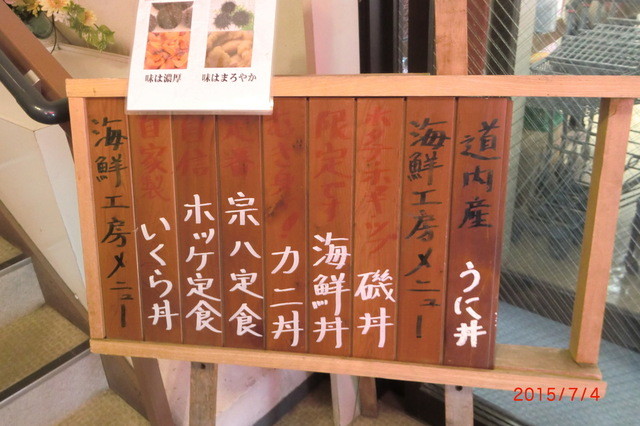 味は濃厚
味はまろやか
道内産 うに丼
海鮮工房メニュー
磯丼
限定 海鮮丼
カニ丼
定番 宗八定食
自信 ホッケ定食
自家製 いくら丼
海鮮工房メニュー
2015/7/4